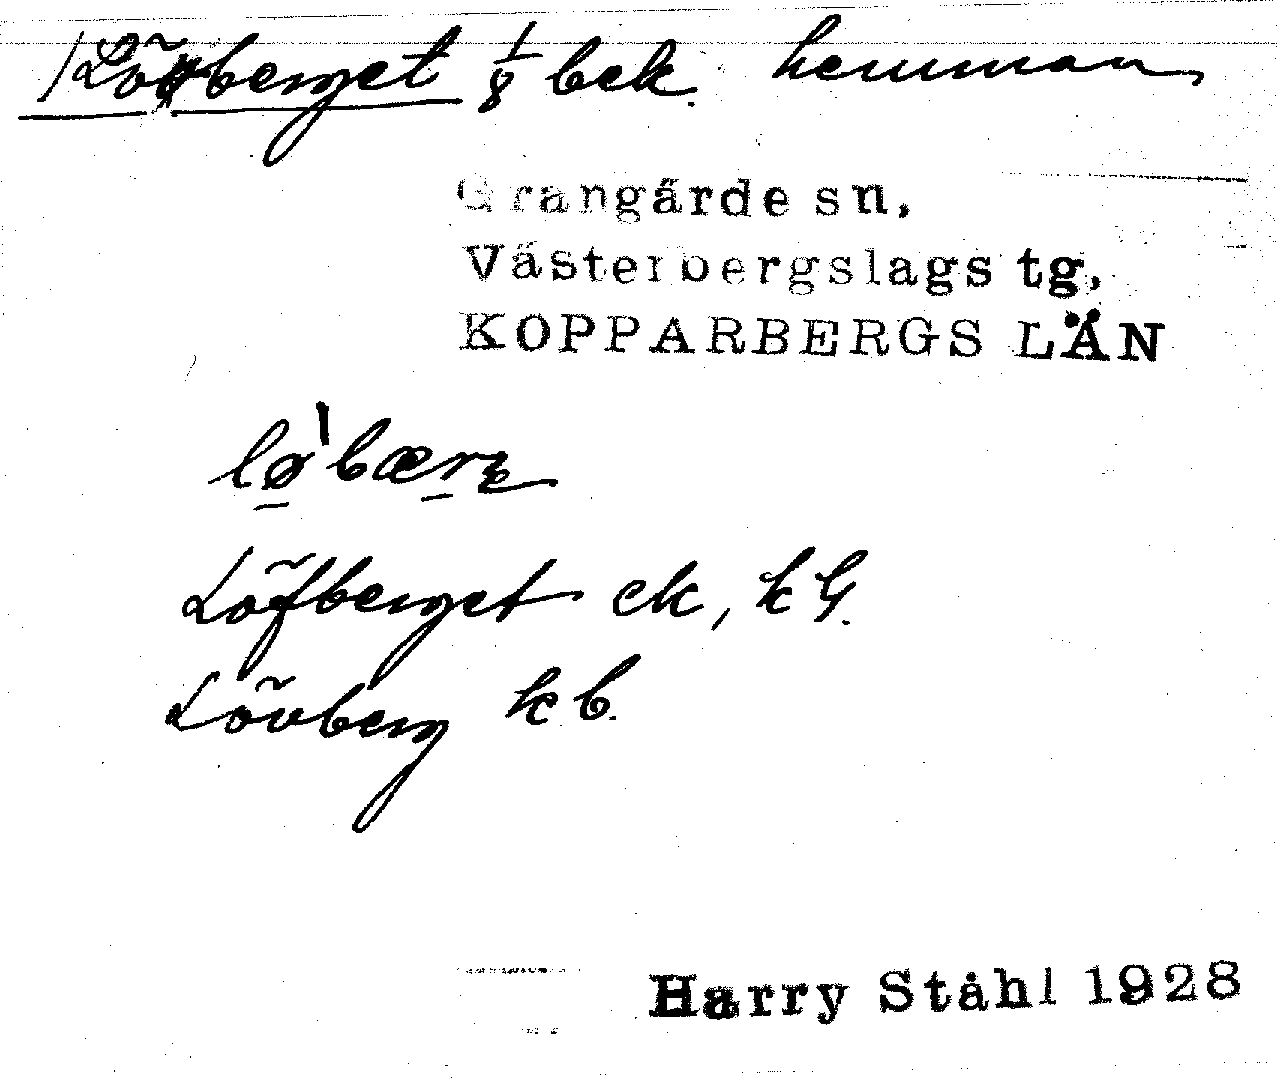 Lövberget 1/8 bek. hemman,
Grangärde sn.
Västerbergslags tg.
KOPPARBERGS LÄN
lø̠`bær̠ɛ
Löfberget ek, kG.
Lövberg kb.
Harry Ståhl 1928